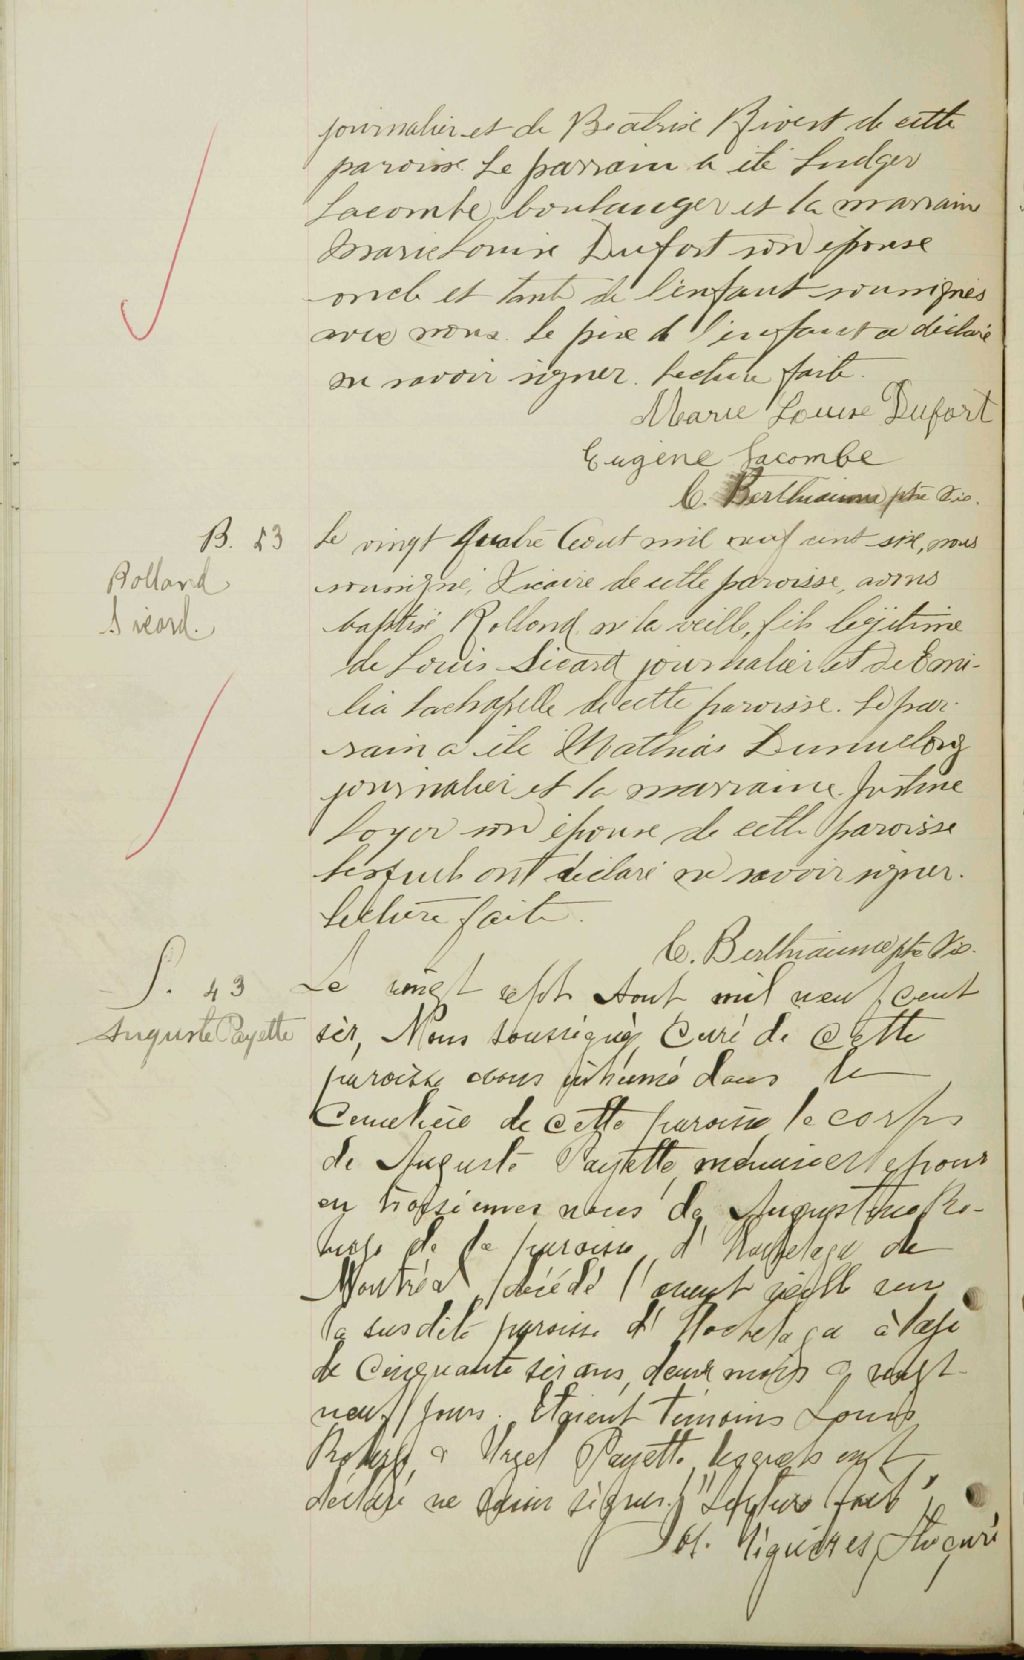 journalier et de Béatrise Rivest de cette
paroisse. Le parrain a été Ludger
Lacombe boulanger et la marraine
Marie Louise Dufort son épouse
oncle et tante de l'enfant soussignés
avec nous. Le père de l'enfant a déclaré
ne savoir signer. Lecture faite.
Marie Louise Dufort
Eugène Lacombe
C. Berthiaume ptre Vic.
B. 53
Rolland
Sicard.
Le vingt quatre Août mil neuf cent six, nous
soussigné, Vicaire de cette paroisse, avons
baptisé Rolland né la veille, fils légitime
de Louis Sicard journalier et de Emi-
lia Lachapelle de cette paroisse. Le par-
rain a été Mathias
journalier et la marraine Justine
Loyer son épouse de cette paroisse
lesquels ont déclaré ne savoir signer.
Lecture faite.
C. Berthiaume ptre Vic.
S. 43
Auguste Payette
Le vingt sept Aout mil neuf cent
six, Nous soussigné, Curé de cette
paroisse avons inhumé dans le
Cimetière de cette paroisse le corps
de Auguste Payette, menuisier époux
en troisièmes noces de Augustine Ro-
de la paroisse d'Hochelaga de
Montréal, décédé l'avant veille en
la susdite paroisse d'Hochelaga à l'âge
de cinquante six ans, deux mois & vingt-
neuf jours. Etaient témoins Louis
& Urgel Payette lesquels ont
déclaré ne savoir signer. Lecture faite
Piguières, Ptre curé